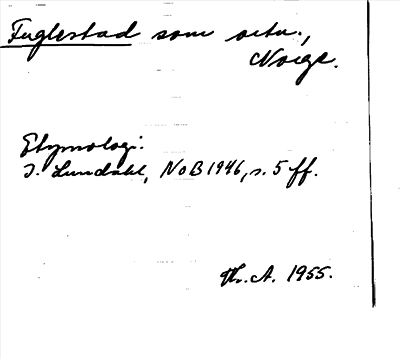 Fuglestad som ortn.,
Norge.
Etymologi:
I. Lundahl, NoB 1946, s. 5 ff.
Th. A. 1955.